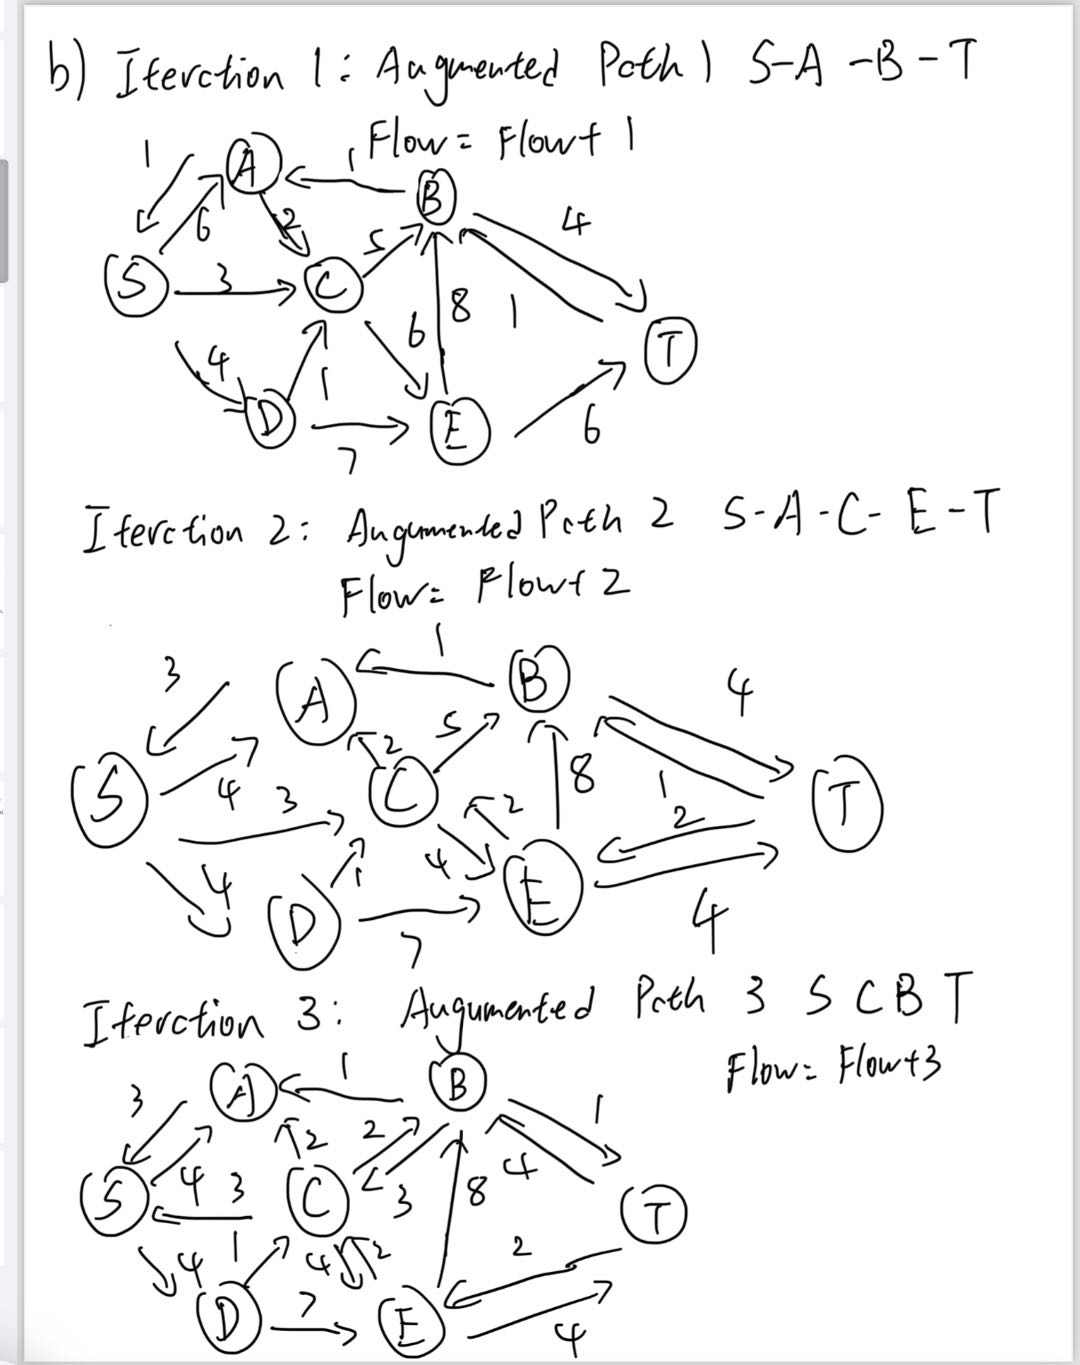 b) Iterction 1: Augmented Path 1 S-A-B-T
Flow = Flow+1
1 A 1 B 4
6 2 5
S 3 C 8 1 T
4 6
D 1 E 6
7
Iterction 2: Augumented Pcth 2 S-A-C-E-T
Flow= Flow+2
3 A 1 B 4
2 5
S 4 3 C 2 8 1 T
2
4 1 4 E
D 7 4
Iterction 3: Augumented Pcth 3 S C B T
Flow= Flow+3
3 A 1 B 1
2 2 4
S 4 3 C 3 8 T
4 1 4 2 2
D 7 E 4